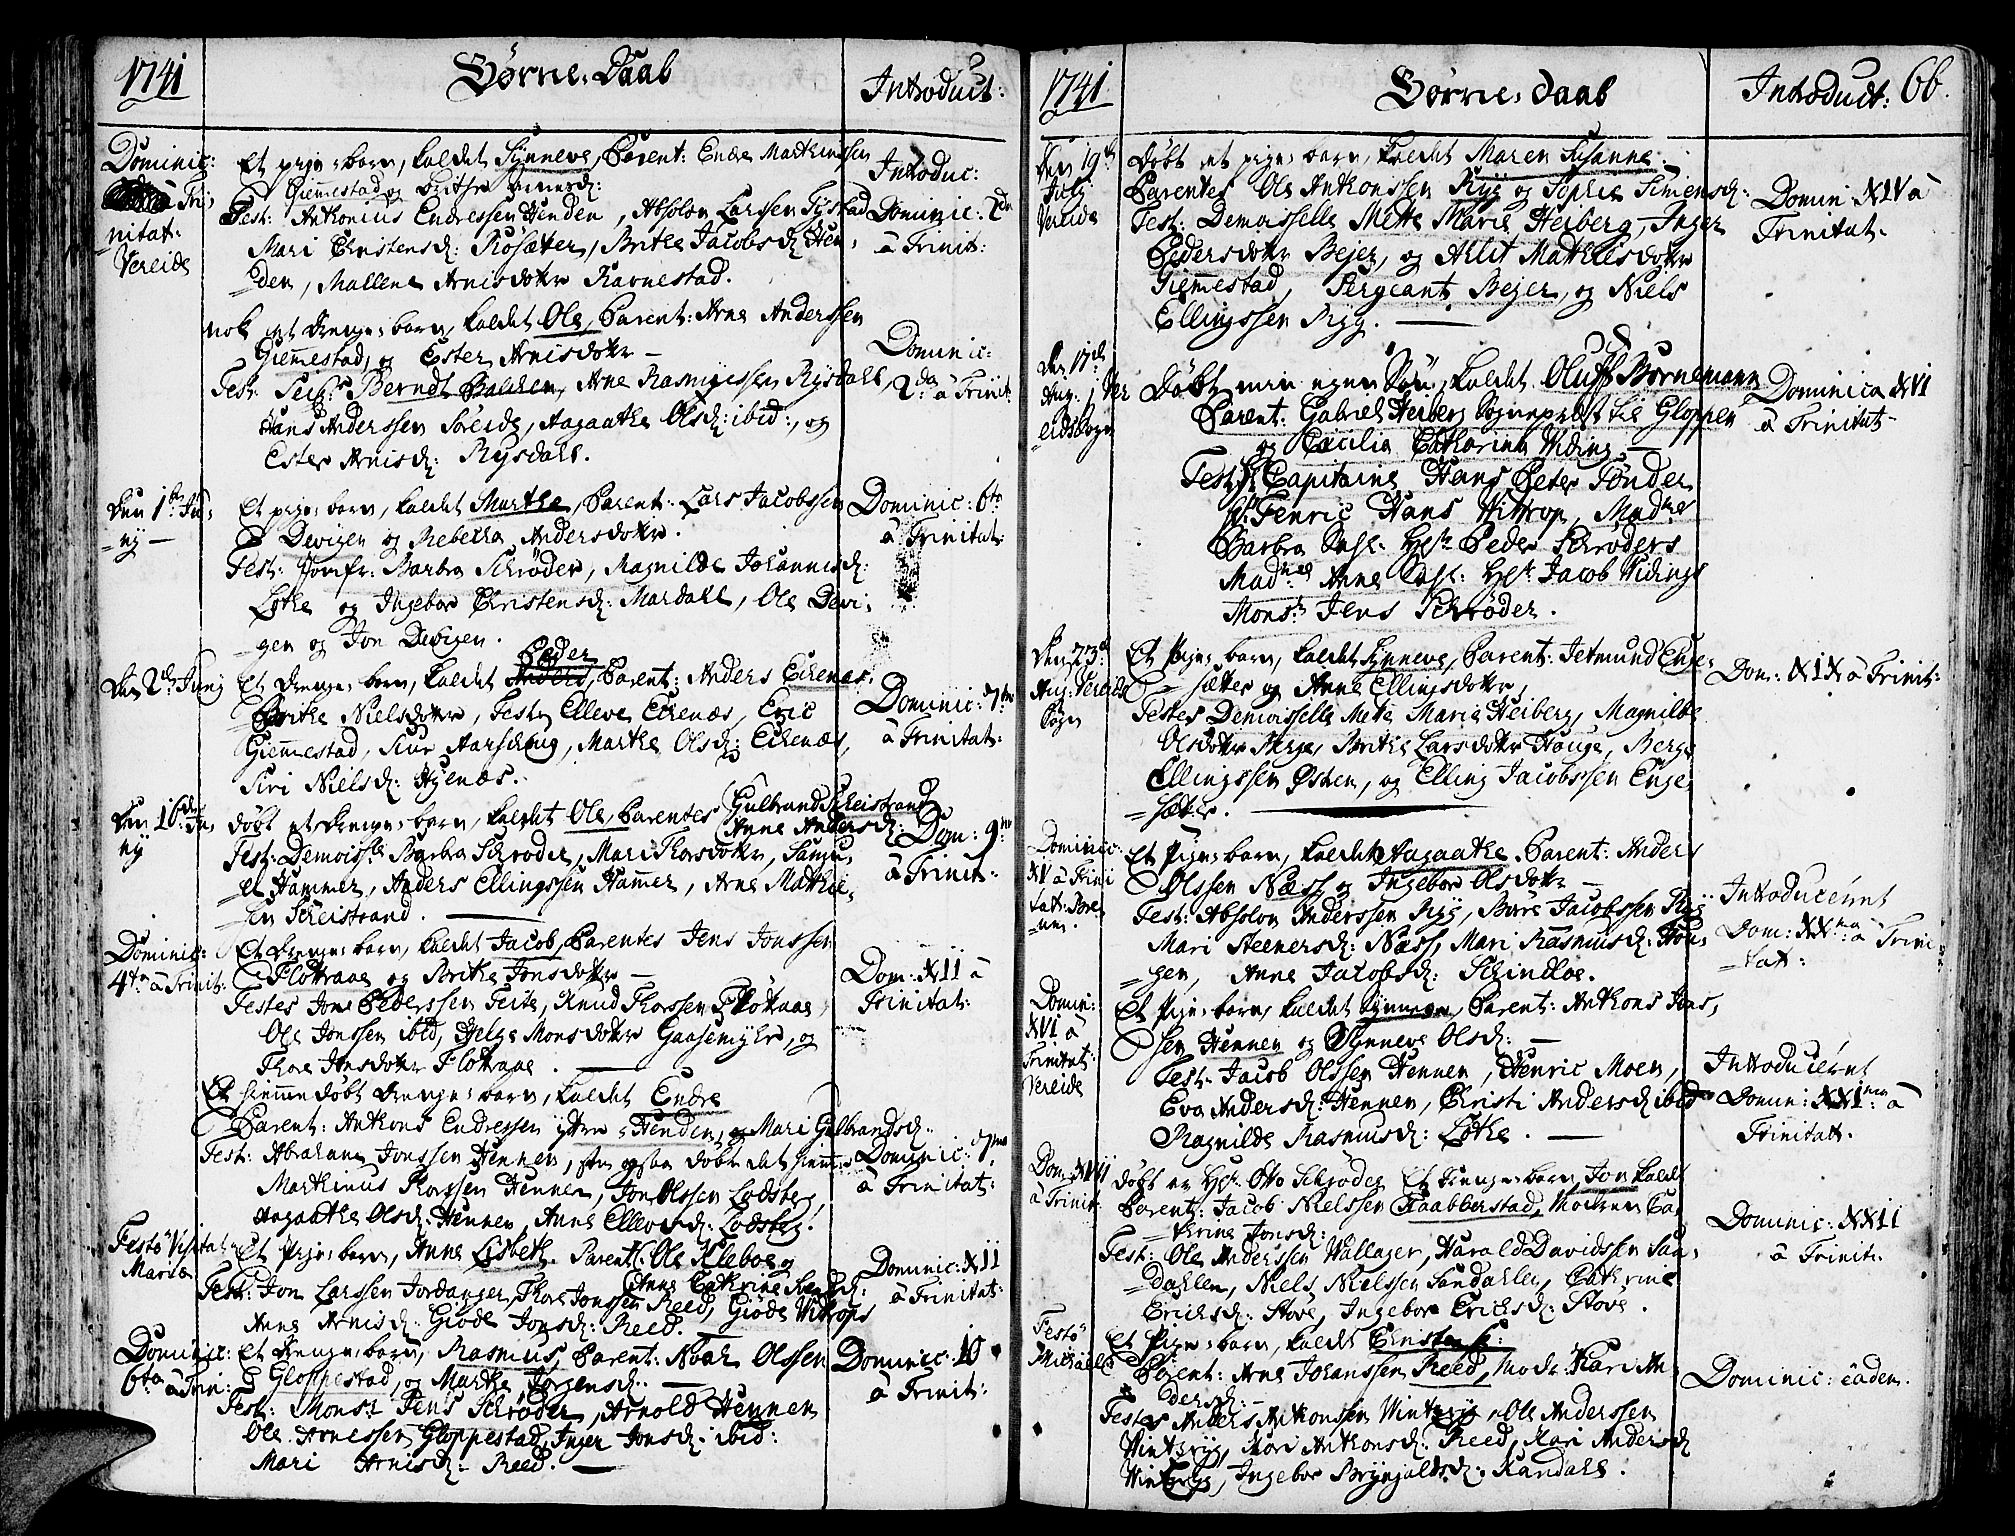 1741
Børne-Daab
Introduct:
Dominic:
à Tri:
nitat:
Vereide
Et pige-barn, kaldet Synneve, Parent: Endre Marthinssen
Giemmestad og Brithe
Test: Anthonius Endressen Henden, Absolon Larssen Fystad
Mari Christensd: Rosæter, Brithe Jacobsd: Hen-
den, Mallene Arnisdotter Ravnestad.
Introduc:
Dominic: 2da
à Trinit:
nok et drenge-barn, kaldet Ole, Parent: Arne Anderssen
Giemmestad, og Ester Arnisdotter —
Test: Berndt Balchen, Arne Rasmussen Rysdall,
Hans Anderssen Søreide, Aagaathe Olsd: ibid:, og
Ester Arnisd: Rysdall.
Dominic:
2da à Trinit:
Den 1te Ju-
ny —
Et pige-barn, kaldet Marthe, Parent: Lars Jacobssen
Devigen og Rebecka Andersdotter.
Test: Jomfr: Barbra Schrøder, Magnilde Johannisd:
Løthe og Ingebor Christensd: Mardall, Ole Devi-
gen og Jon Devigen.
Dominic: 6ta
à Trinitat:
Den 2den Juny
Peder
Et drenge-barn, kaldet Anders, Parent: Anders Eikenæs
Brithe Nielsdotter, Test: Elleve Eikenæs, Eric
Giemmestad, Siur Aarschoug, Marthe Olsd: Eikenæs,
Siri Nielsd: Hyenæs.
Dominic: 7ma
à Trinitat:
Den 16de Ju-
ny
døbt et drenge-barn, kaldet Ole, Parentes Gulbrand Scheistrand
Anne Andersd:
Test: Demoisle Barbra Schrøder, Mari Thorsdotter, Samu-
el Hammer, Anders Ellingssen Hammer, Arne Mathie-
sen Scheistrand.
Dom: 9na
à Trinit:
Dominic:
4ta à Trinit:
Et drenge-barn, kaldet Jacob, Parentes Jens Jonssen
Flottraae og Brithe Jonsdotter —
Testes Jon Pederssen Feite, Knud Thorssen Flottraae,
Ole Jonssen ibid, Helge Monsdotter Gaasemyhr, og
Thore Jonsdotter Flottraae.
Dom: XII à
Trinitat:
Et hiemmedøbt drenge-barn, kaldet Endre
Parent: Anthons Endressen yttre Henden, og Mari Gulbrandsd:
Test: Abraham Jonssen Hennen, døbt det hiemme
Marthinus Thorssen Hennen, Jon Olssen Lodsberg
Aagaathe Olsd: Hennen, Anne Ellevsd: Lodsberg.
Dominic: 7ma
à Trinitat:
Festo Visitat:
Mariæ
Et pige-barn, Anne Lisbeth. Parent: Ole Kleboe og
Anne Cathrine
Test: Jon Larssen Jordanger, Thore Jonssen Reed, Giöde Vittrops
Anne Arnisd: Giöde Jonsd: Reed.
Dominic: XII
à Trinitat:
Dominic:
6ta à Trin:
Et drenge-barn, Rasmus, Parent: Noah Olssen
Gloppestad, og Marthe Jørgensd: —
Test: Monsr Jens Schrøder, Arnold Hennen
Ole Arnessen Gloppestad, Inger Jonsd: ibid:
Mari Arnisd: Reed.
Dominic: 10
à Trinit:
1741
Børne-Daab
Introduct: 66.
Den 19de
July
Vereide
Døbt et pige-barn, kaldet Maren Susanne.
Parentes Ole Anthonssen Ryg og Sophie Simensd:
Test: Demoisselle Mette Marie Heiberg, Inger
Pedersdotter Bejer, og Ahlit Mathiisdotter
Giemmestad, Sergeant Bejer, og Niels
Ellingssen Ryg.
Domin: XIV à
Trinitat.
Den 17de
Aug:, Ver
eidsogn
Døbt min egen Søn, kaldet Oluff Bornemann
Parent: Gabriel Heiberg Sognepræst til Gloppen
og Cæcilia Catharina Widing —
Test: Hr Capitaine Hans Peter Tönder
Hr Fenric Hans Wittrop, Madme
Barbra Sal: Hr Peder Schrøders
Madme Anne Sal: Hr Jacob Widings
Monsr Jens Schrøder.
Dominica XVI
à Trinitat
Den 23de
Aug: Vereide
Sogn
Et Pige-barn, kaldet Synneve, Parent: Jetmund Enge-
sætter og Anne Ellingsdotter,
Testes Demoisselle Mette Marie Heiberg, Magnilde
Olsdotter Berge, Brithe Larsdotter Houge, Berge
Ellingssen Østen, og Elling Jacobssen Enge-
sætter.
Dom: XIX à Trinit:
Dominic:
XV à Trini
tat: Bre
um.
Et Pige-barn, kaldet Aagaathe. Parent: Anders
Olssen Næss og Ingebor Olsdotter —
Test: Absolon Anderssen Ryg, Børe Jacobssen Ryg
Mari Steenersd: Næss, Mari Rasmusd: Hou-
gen, Anne Jacobsd: Schindloe.
Introducérnt
Dom: XXma à Trini-
tat:
Domin:
XVI à
Trinitat:
Vereide
Et Pige-barn, kaldet Synneve, Parent: Anthons Jons-
sen Hennen og Synneve Olsd: —
Test: Jacob Olssen Hennen, Henric Moen,
Eva Andersd: Hennen, Christi Andersd: ibid
Magnilde Rasmusd: Løthe.
Introducérnt
Domin: XXIma à
Trinitat:
Dom: XVII
à Trinit:
døbt er Hr Otto Schrøder Et Drenge-barn, Jon kaldet
Parent: Jacob Nielssen Raabberstad, Moderen Ca-
thrine Jonsd:
Test: Ole Anderssen Wallager, Harald Davidssen San-
dahlen, Niels Nielssen Sandahlen, Cathrine
Ericksd: Stove, Ingebor Ericksd: Stove.
Dominic: XXII
à Trinit:
Festo
Michaelis
Et Pige-barn, kaldet
Parent: Arne Johanssen Reed, Mod: Kari An-
dersd: —
Testes Anders Anthonssen Wintræig, Ole Anderssen
Wintræig, Kari Anthonsd: Reed, Kari Andersd:
Wintræig, Ingebor Brynjulsd: Sandall.
Dominic: eadem.